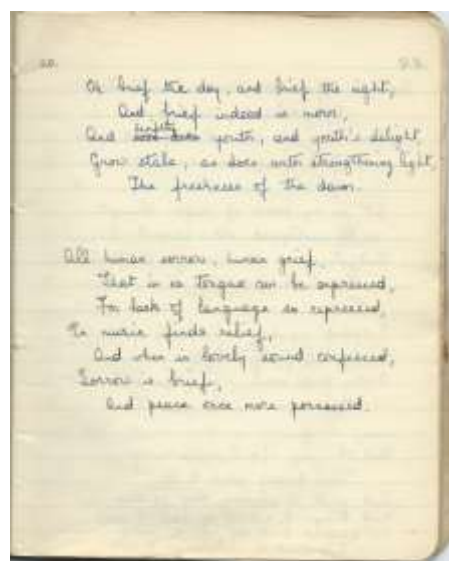 20.
Oh brief the day, and brief the night,
And brief indeed is morn,
And swiftly youth, and youth's delight
Grow stale, as does with strengthening light,
The freshness of the dawn.
All human sorrow, human grief,
That in no tongue can be expressed,
For lack of language so repressed,
In music finds relief,
And when in lovely sound confessed,
Sorrow is brief,
And peace once more possessed.